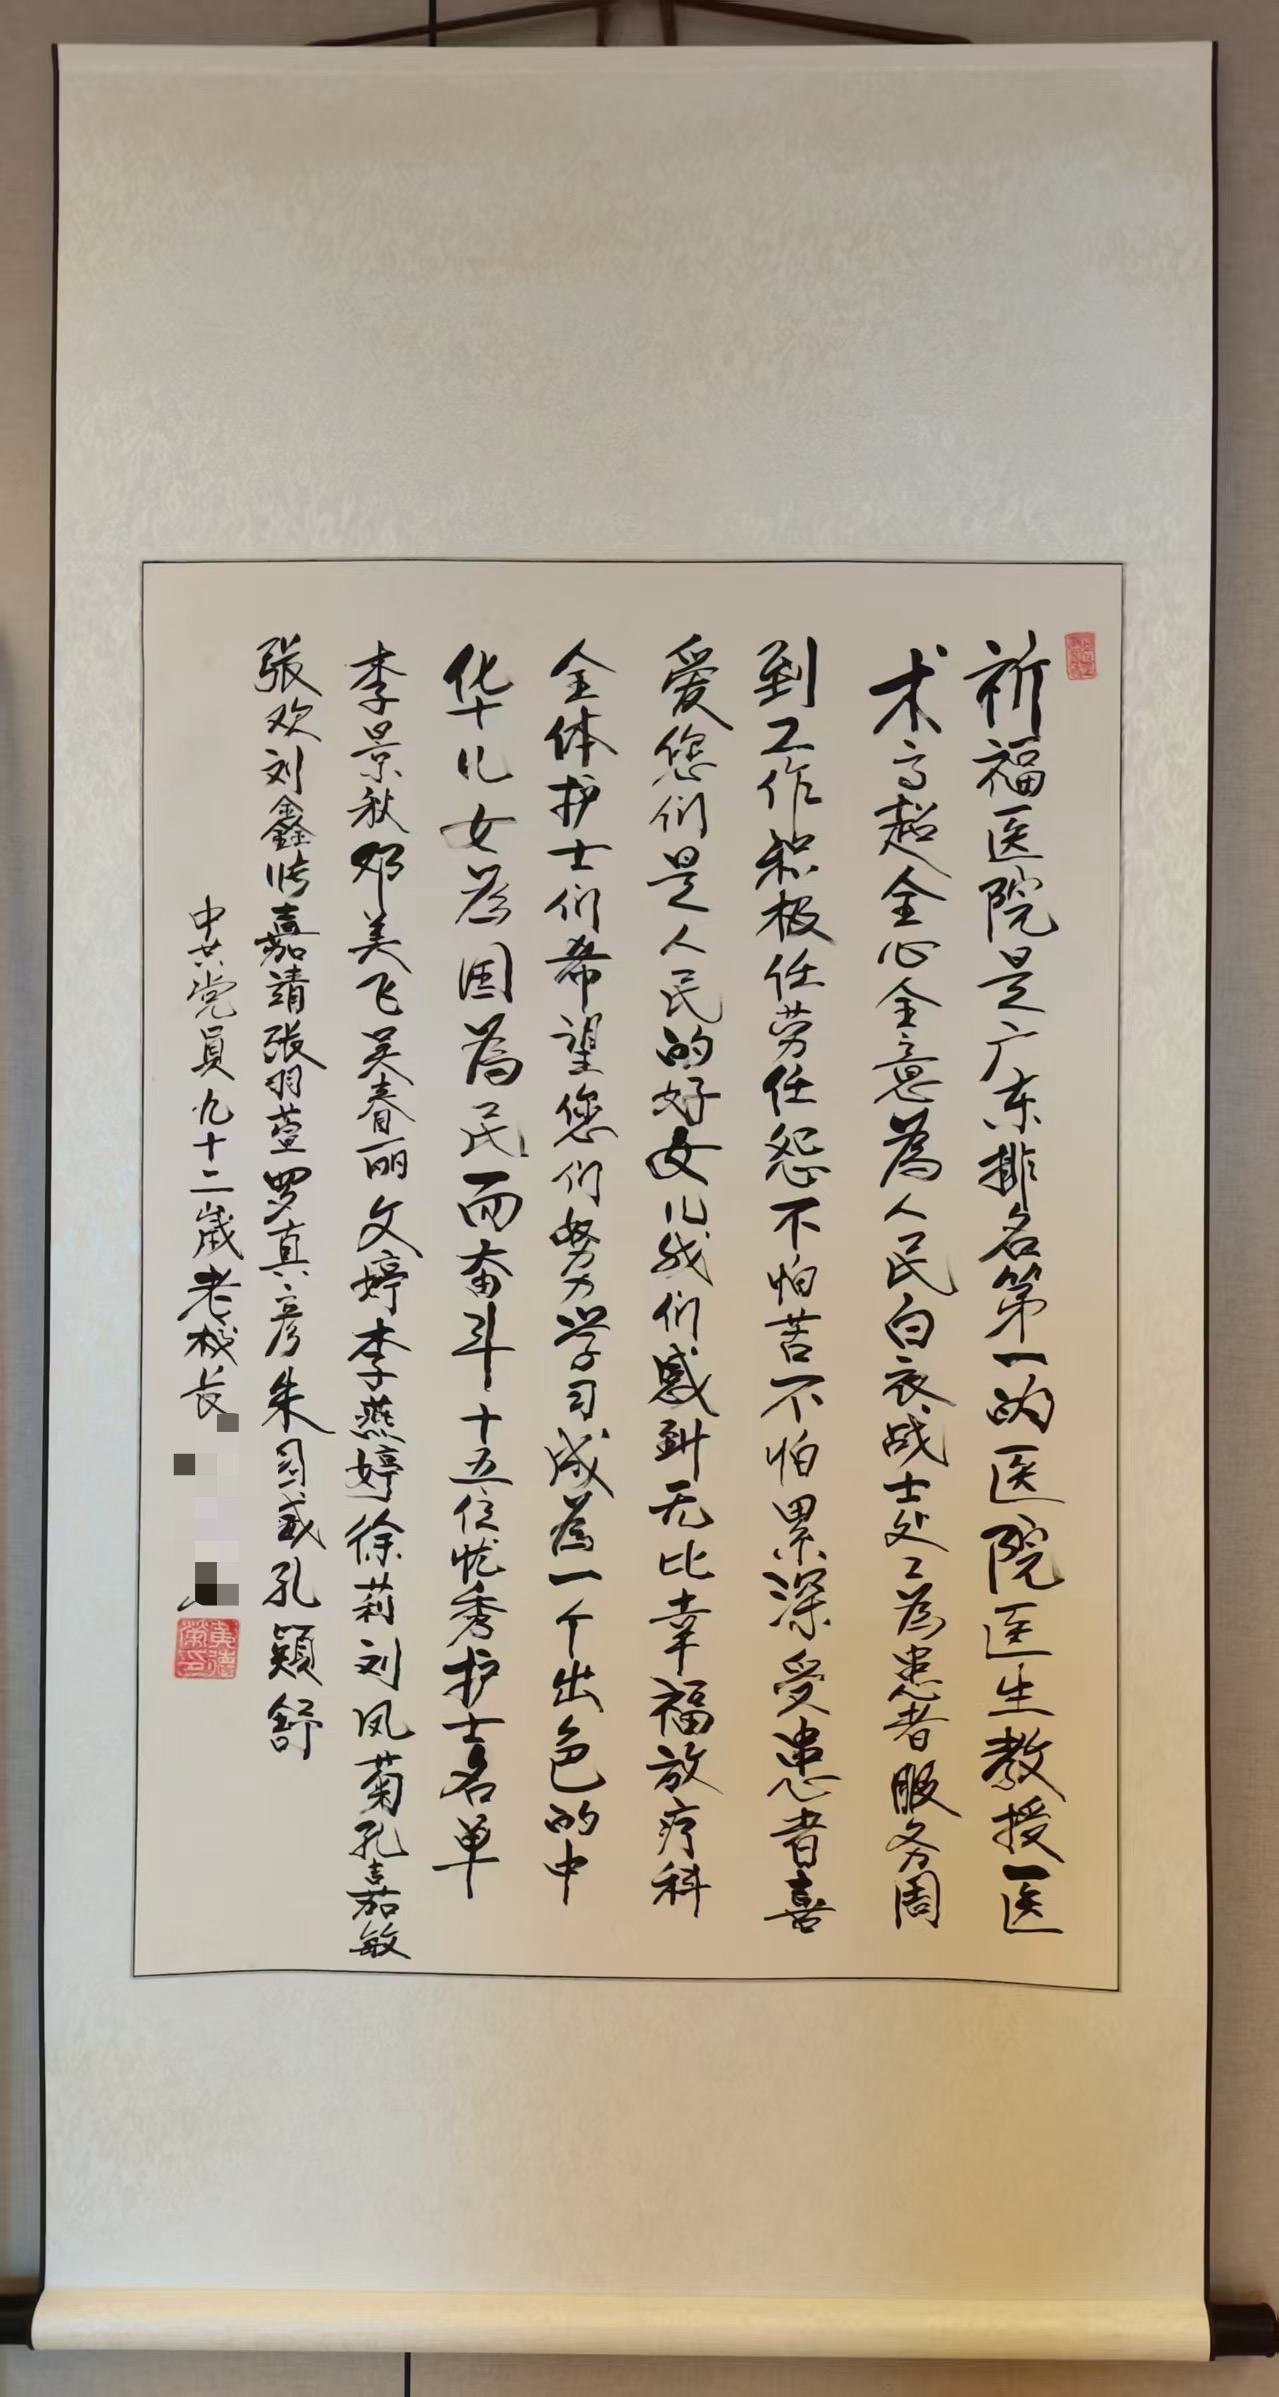 祈福医院是广东排名第一的医院医生教授医
术高超全心全意為人民白衣战士处〻為患者服务周
到工作积极任劳任怨不怕苦不怕累深受患者喜
爱您们是人民的好女儿我们感到无比幸福放疗科
全体护士们希望您们努力学习成為一个出色的中
华儿女為国為民而奋斗十五位优秀护士名单
李景秋邓美飞吴春丽文婷李燕婷徐莉刘凤菊孔嘉敏
张欢刘鑫嘉靖张羽萱罗真彦朱孔颖舒
中共党员九十二岁老校长